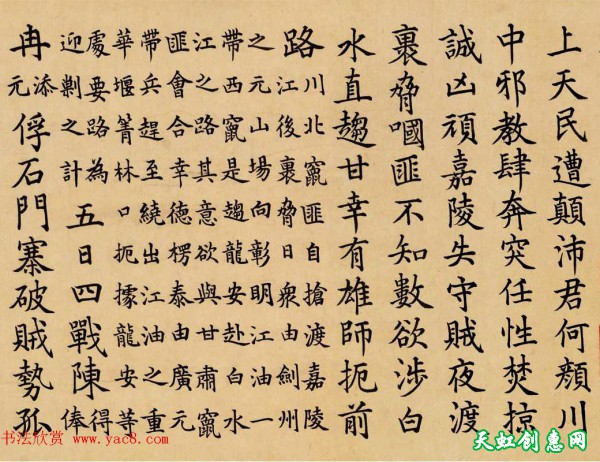 上天民遭顛沛君何顏川
中邪教肆奔突任性焚掠
誠凶頑嘉陵失守賊夜渡
裹脅嘓匪不知數欲涉白
水直趨甘幸有雄師扼前
路
川北竄匪自搶渡嘉陵
江後裹脅日衆由劍州
之元山場向彰明江油一
帶西竄是趨龍安赴白水
江之路其意欲與甘肅竄
匪會合幸德楞泰由廣元
帶兵趕至繞出江油之重
華堰箐林口扼據龍安等
處要路為
迎剿之計
五日四戰陳
得
俸
冉
添
元
俘石門寨破賊勢孤
书法欣赏 www.yac8.com
天虹创惠网